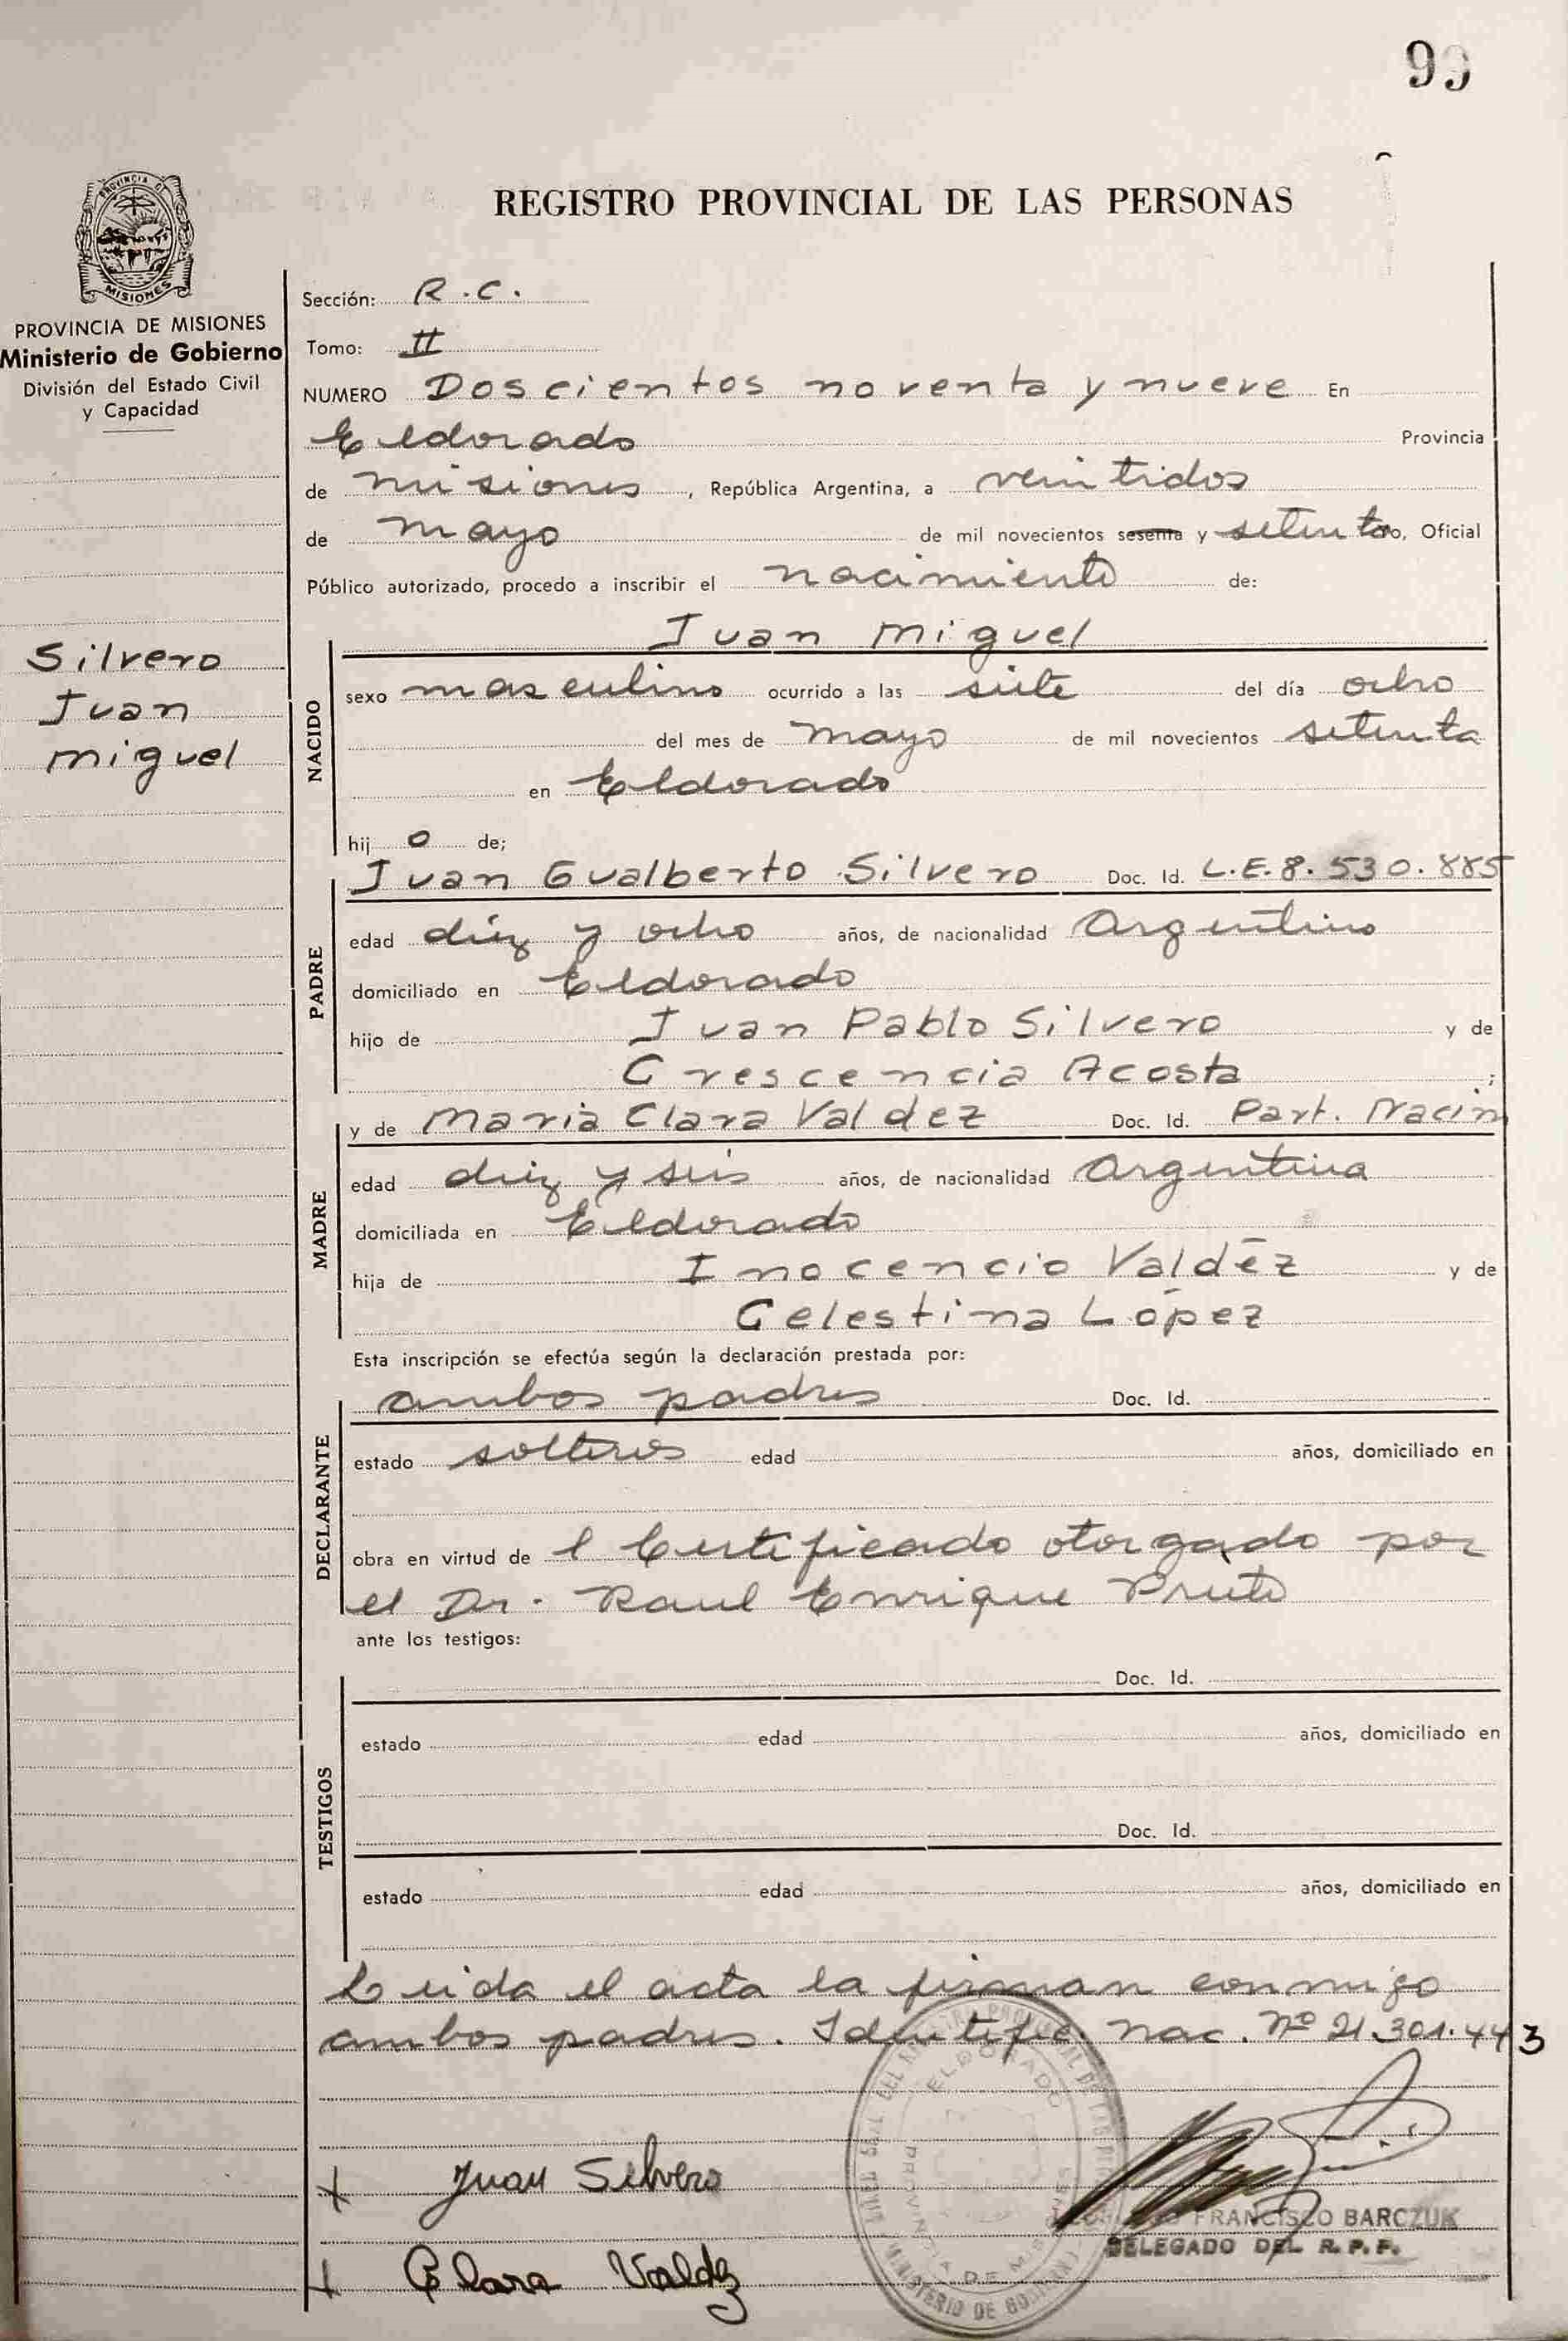 99
REGISTRO PROVINCIAL DE LAS PERSONAS
PROVINCIA DE
MISIONES
PROVINCIA DE MISIONES
Ministerio de Gobierno
División del Estado Civil
y Capacidad
Silvero
Juan
Miguel
Sección: R.C.
Tomo: II
NUMERO Doscientos noventa y nueve En
Eldorado Provincia
de misiones, República Argentina, a veintidos
de mayo de mil novecientos sesenta y setenta yo, Oficial
Público autorizado, procedo a inscribir el nacimiento de:
Juan Miguel
NACIDO
sexo masculino ocurrido a las siete del día ocho
del mes de mayo de mil novecientos setenta
en Eldorado
hij o de;
Juan Gualberto Silvero Doc. Id. L.E. 8.530.885
PADRE
edad diez y ocho años, de nacionalidad Argentino
domiciliado en Eldorado
hijo de Juan Pablo Silvero y de
Crescencia Acosta ;
y de Maria Clara Valdez Doc. Id. Part. Nacim
MADRE
edad diez y seis años, de nacionalidad Argentina
domiciliada en Eldorado
hija de Inocencio Valdéz y de
Celestina López
Esta inscripción se efectúa según la declaración prestada por:
ambos padres Doc. Id.
DECLARANTE
estado solteros edad años, domiciliado en
obra en virtud de l Certificado otorgado por
el Dr. Raul Enrique
ante los testigos:
Doc. Id.
TESTIGOS
estado edad años, domiciliado en
Doc. Id.
estado edad años, domiciliado en
Leida el acta la firman conmigo
ambos padres. Identific. nac. Nº 21.301.443
ELDORADO
PROVINCIA DE MISIONES
MINISTERIO DE
Juan Silvero
FRANCISCO BARCZUK
DELEGADO DEL R. P. P.
Clara Valdez